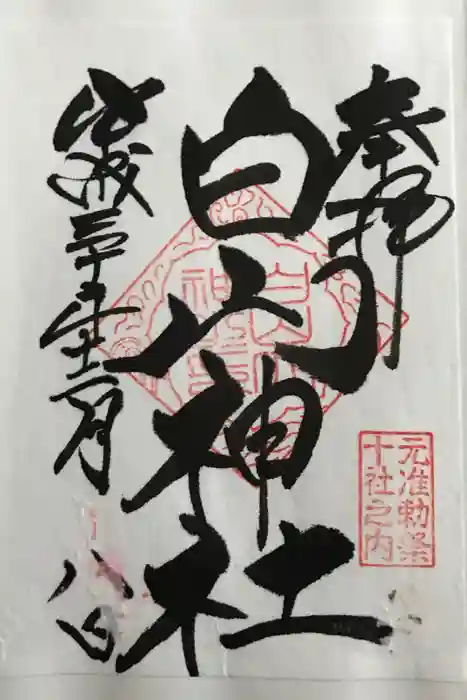 奉拝
白山神社
平成三十年十二月
八日
元准勅祭
十社之内